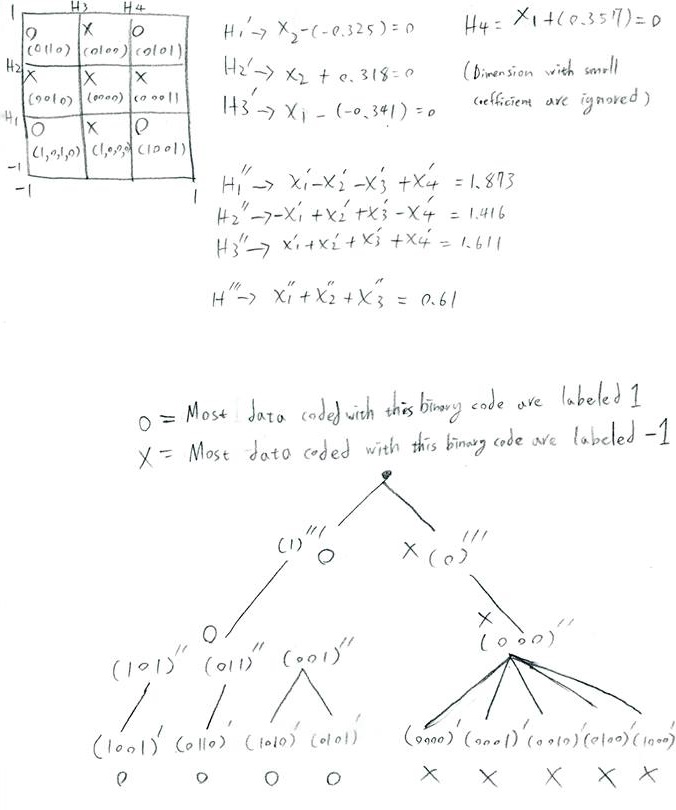 H3 H4
1
O X O
(0110) (0100) (0101)
H2
X X X
(0010) (0000) (0001)
H1
O X O
(1,0,1,0) (1,0,0,0) (1001)
-1
-1 1
H1' → X2-(-0.325)=0
H2' → X2 + 0.318=0
H3' → X1 - (-0.341) = 0
H4 = X1 + (0.357) = 0
(Dimension with small
coefficient are ignored)
H1'' → X1'-X2'-X3' +X4' = 1.873
H2'' → -X1' + X2' + X3' - X4' = 1.416
H3'' → X1' + X2' + X3' + X4' = 1.611
H''' → X1'' + X2'' + X3'' = 0.61
O = Most data coded with this binary code are labeled 1
X = Most data coded with this binary code are labeled -1
(1)''' O X (0)'''
O X
(101)'' (011)'' (001)'' (000)''
(1001)' (0110)' (1010)' (0101)' (0000)' (0001)' (0010)' (0100)' (1000)'
O O O O X X X X X